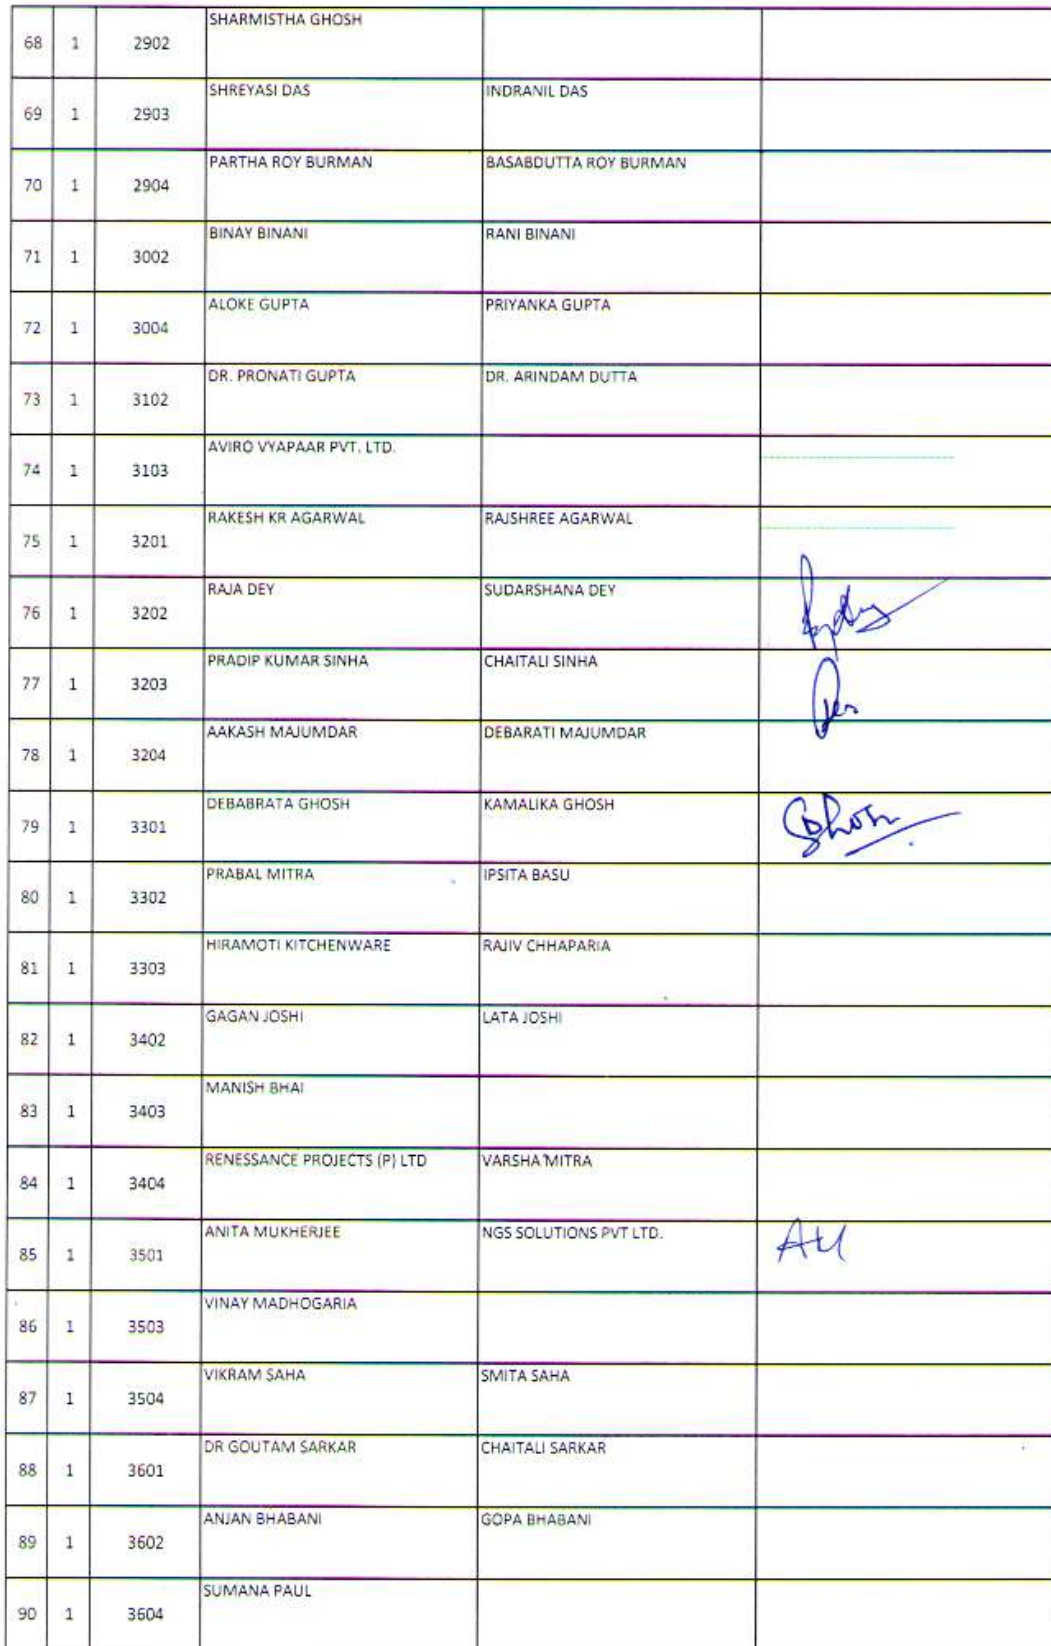 68 1 2902 SHARMISTHA GHOSH
69 1 2903 SHREYASI DAS INDRANIL DAS
70 1 2904 PARTHA ROY BURMAN BASABDUTTA ROY BURMAN
71 1 3002 BINAY BINANI RANI BINANI
72 1 3004 ALOKE GUPTA PRIYANKA GUPTA
73 1 3102 DR. PRONATI GUPTA DR. ARINDAM DUTTA
74 1 3103 AVIRO VYAPAAR PVT. LTD.
75 1 3201 RAKESH KR AGARWAL RAJSHREE AGARWAL
76 1 3202 RAJA DEY SUDARSHANA DEY
77 1 3203 PRADIP KUMAR SINHA CHAITALI SINHA
78 1 3204 AAKASH MAJUMDAR DEBARATI MAJUMDAR
79 1 3301 DEBABRATA GHOSH KAMALIKA GHOSH
80 1 3302 PRABAL MITRA IPSITA BASU
81 1 3303 HIRAMOTI KITCHENWARE RAJIV CHHAPARIA
82 1 3402 GAGAN JOSHI LATA JOSHI
83 1 3403 MANISH BHAI
84 1 3404 RENESSANCE PROJECTS (P) LTD VARSHA MITRA
85 1 3501 ANITA MUKHERJEE NGS SOLUTIONS PVT LTD.
86 1 3503 VINAY MADHOGARIA
87 1 3504 VIKRAM SAHA SMITA SAHA
88 1 3601 DR GOUTAM SARKAR CHAITALI SARKAR
89 1 3602 ANJAN BHABANI GOPA BHABANI
90 1 3604 SUMANA PAUL